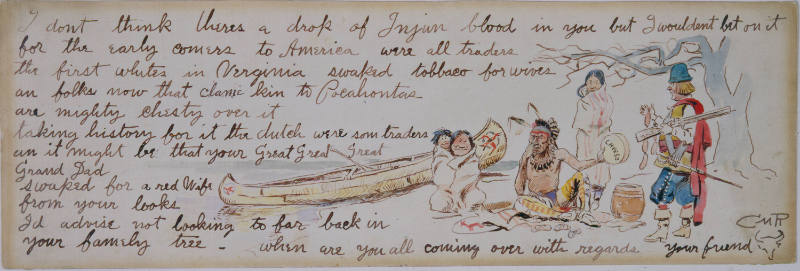 I dont think theres a drop of Injun blood in you but I wouldent bet on it
for the early comers to America were all traders
the first whites in Verginia swaked tobbaco for wives
an folks now that clame kin to Pocahontas
are mighty chesty over it
taking history for it the dutch were som traders
an it might be that your Great Great Great
Grand Dad
swaked for a red Wife
from your looks
Id advise not looking to far back in
your famely tree - when are you all coming over with regards your friend
CMR